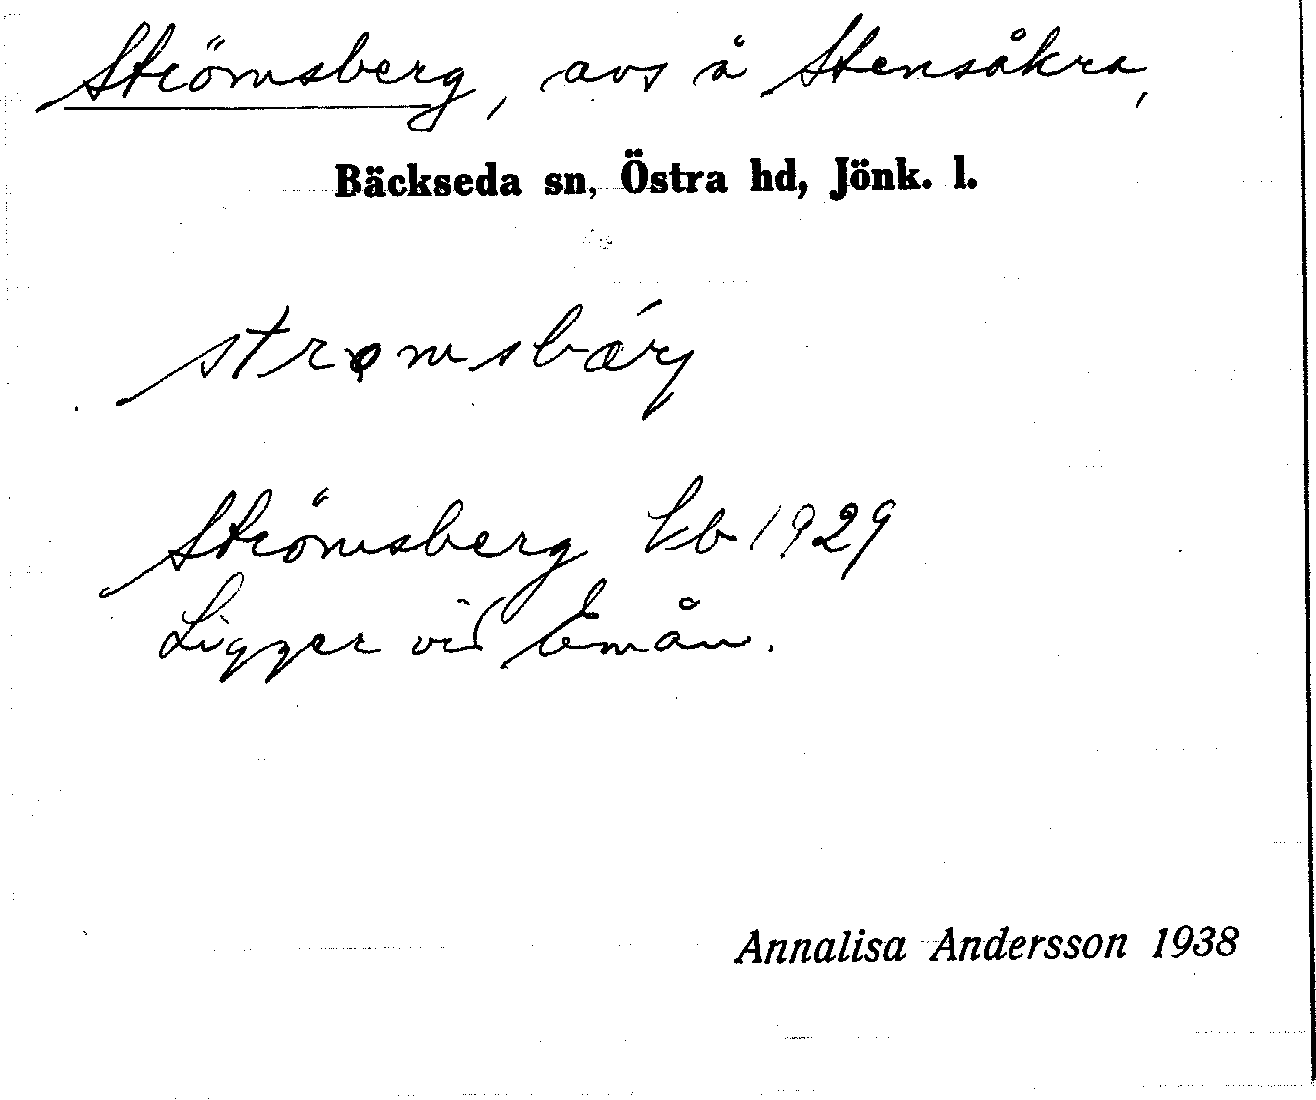 Strömsberg, avs å Stensåkra,
Bäckseda sn, Östra hd, Jönk. l.
Strömsberg Lb 1929
Ligger vid Emån.
Annalisa Andersson 1938